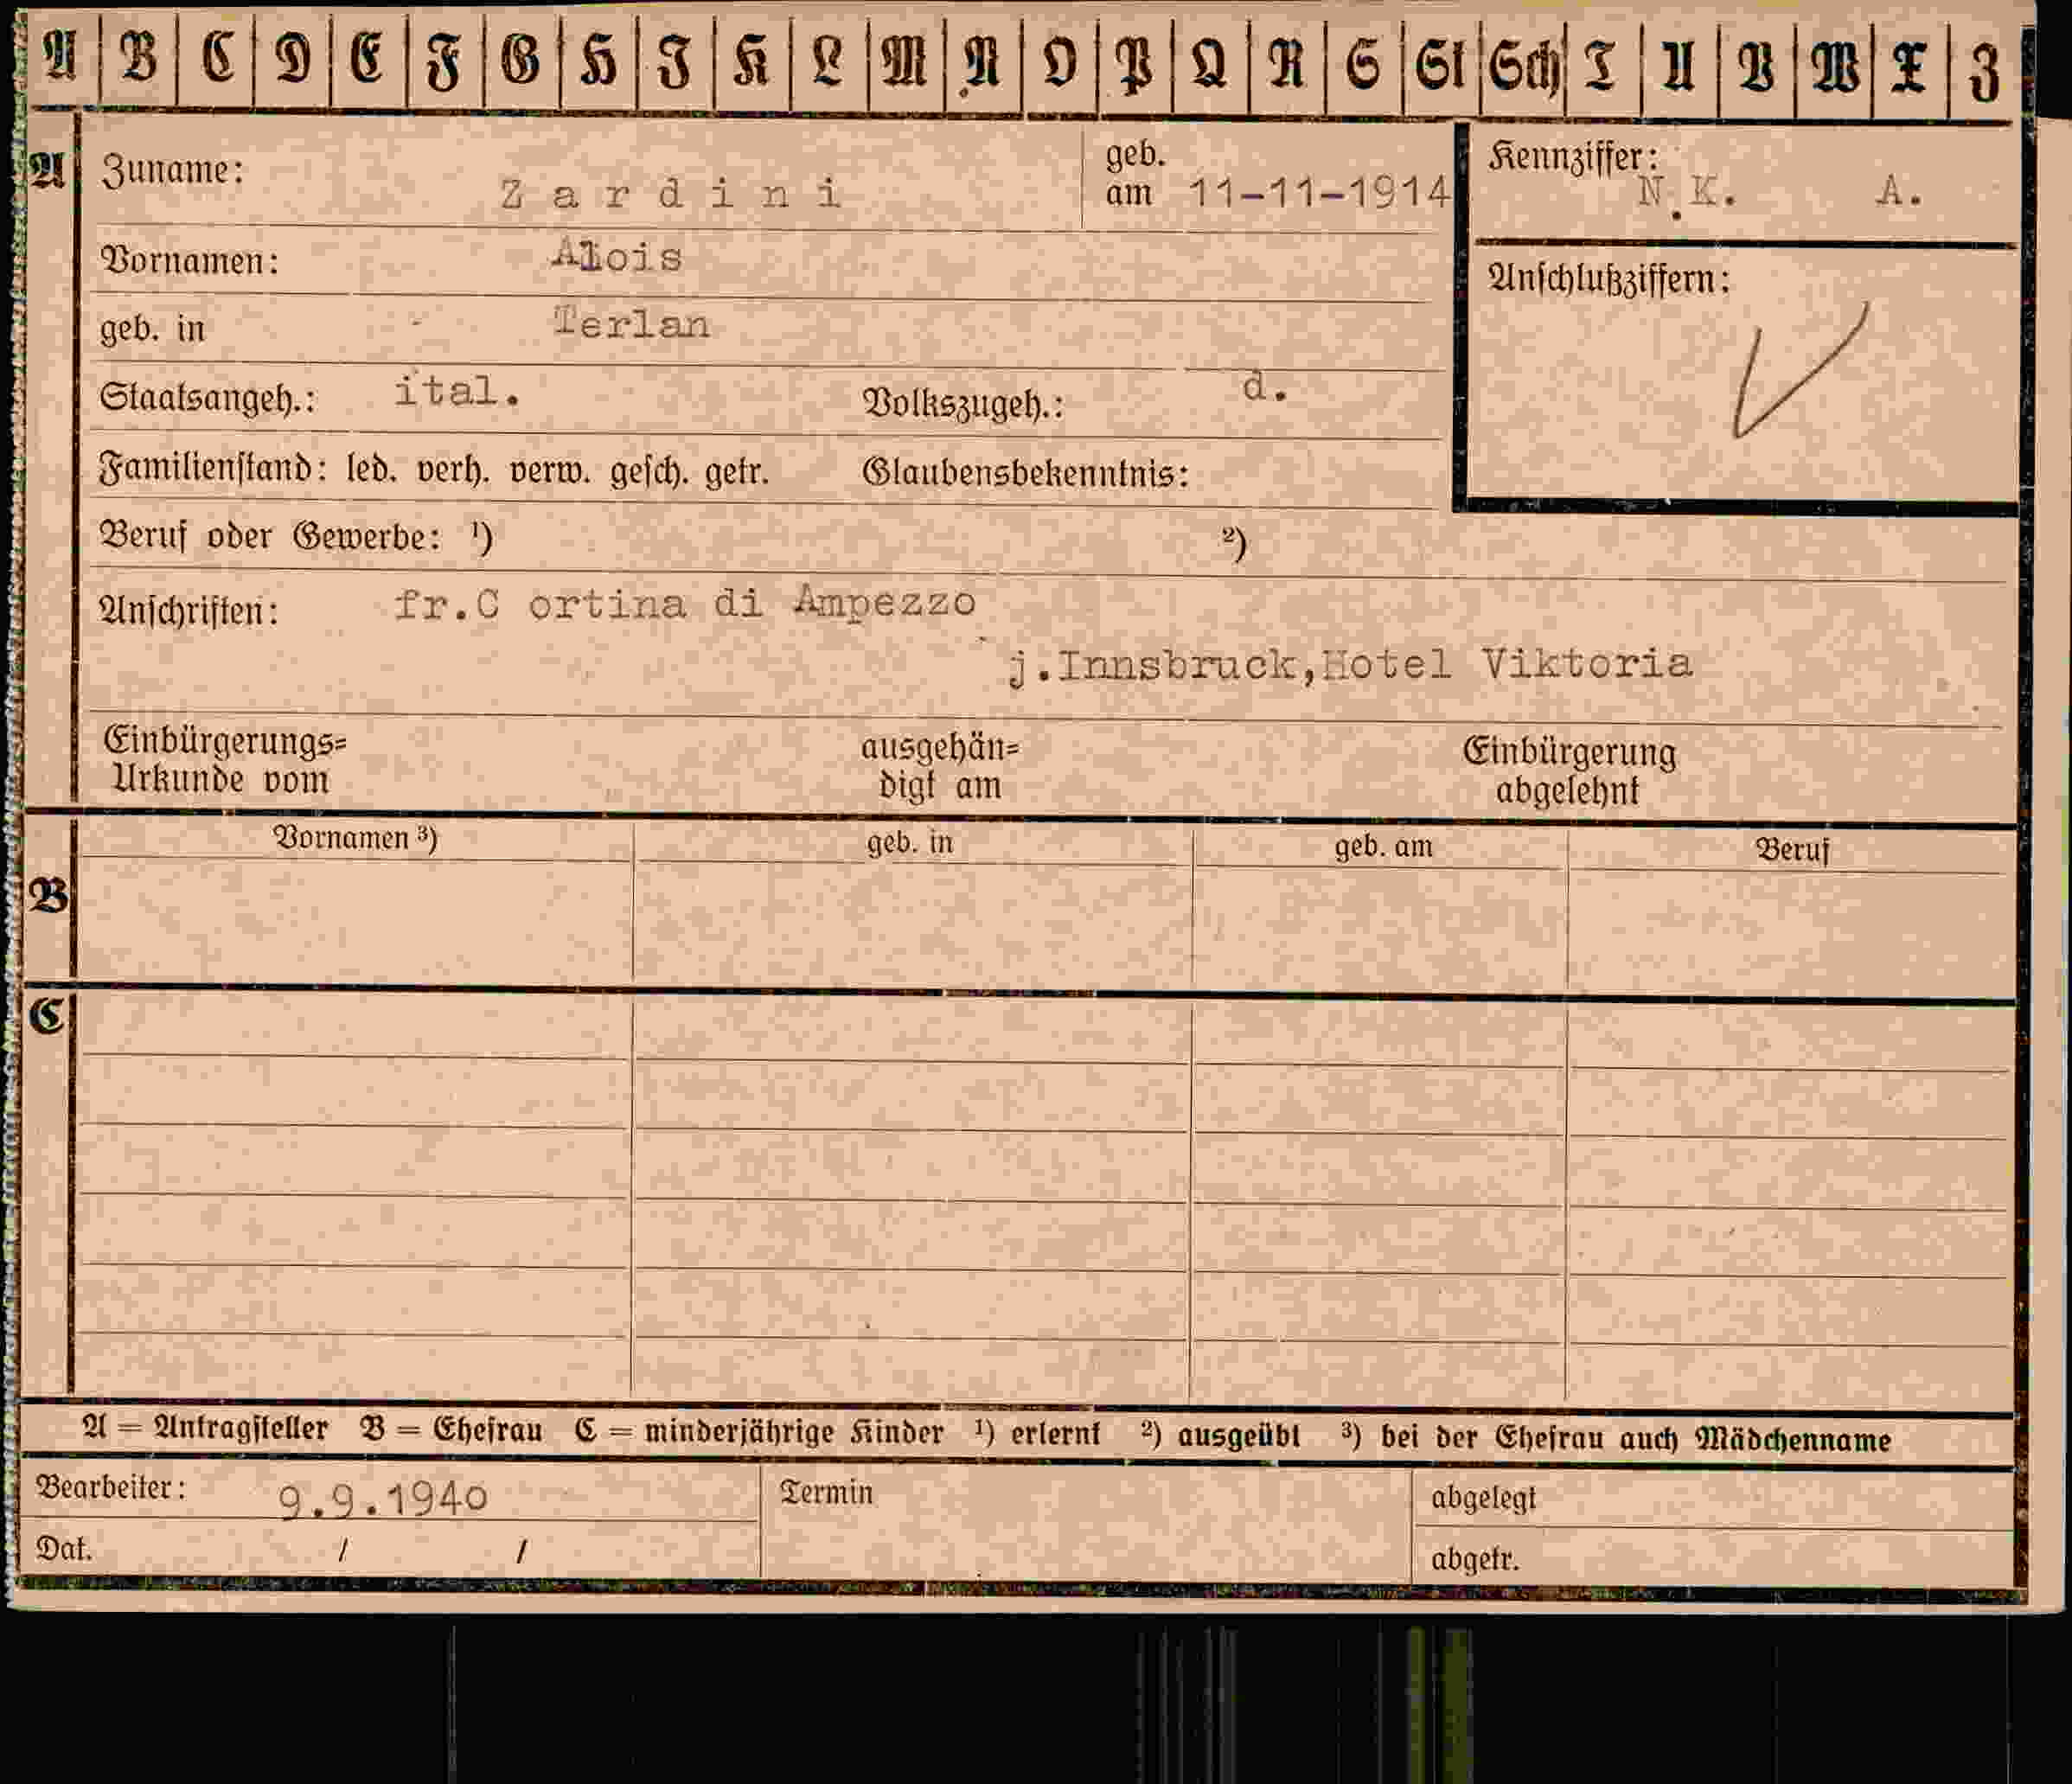 A B C D E F G H I K L M N O P Q R S St Sch T U V W X Z
A Zuname: Zardini geb. am 11-11-1914 Kennziffer: N.K. A.
Vornamen: Alois
Anschlußziffern:
geb. in Terlan
Staatsangeh.: ital. Volkszugeh.: d.
Familienstand: led. verh. verw. gesch. getr. Glaubensbekenntnis:
Beruf oder Gewerbe: ¹) ²)
Anschriften: fr.C ortina di Ampezzo
j.Innsbruck,Hotel Viktoria
Einbürgerungs= ausgehän= Einbürgerung
Urkunde vom digt am abgelehnt
Vornamen ³) geb. in geb. am Beruf
B
C
A = Antragsteller B = Ehefrau C = minderjährige Kinder ¹) erlernt ²) ausgeübt ³) bei der Ehefrau auch Mädchenname
Bearbeiter: 9.9.1940 Termin abgelegt
Dat. / / abgetr.